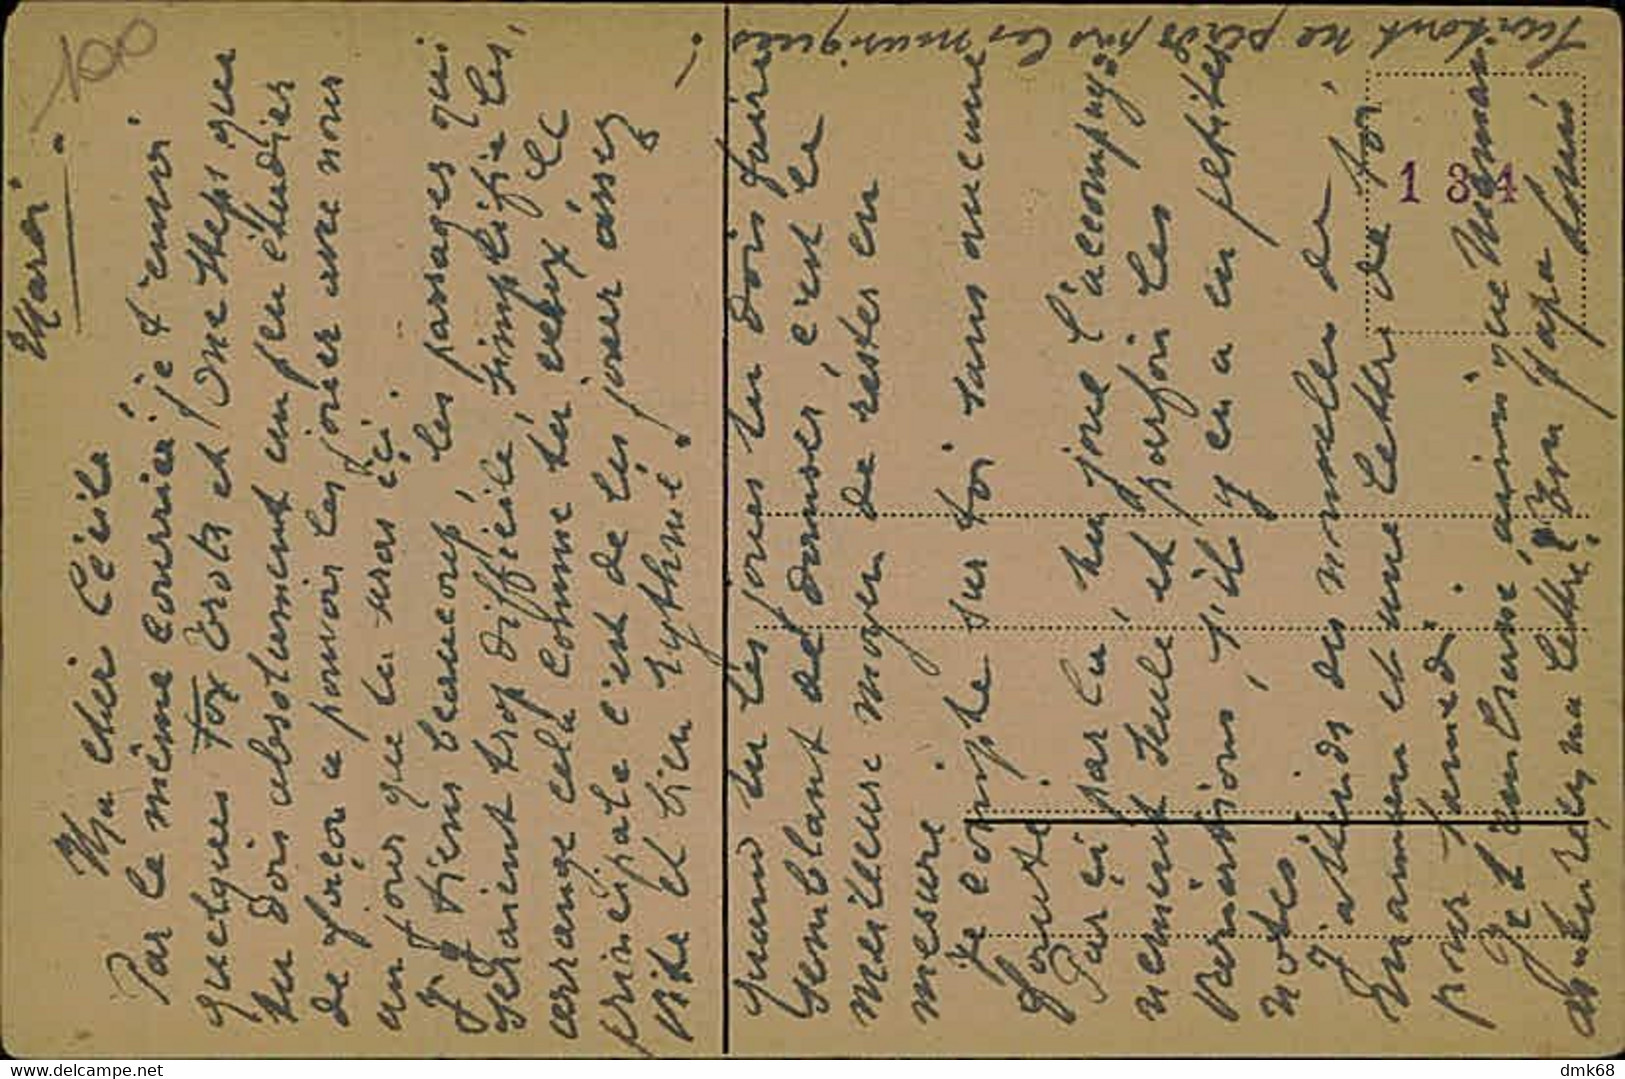 Mardi.
100
Ma cher Cécile
Par le même courrier je t'envoi
quelques Fox Trots et One Steps que
tu dois absolument un peu étudier
de façon a pouvoir les jouer avec nous
un jour que tu seras ici.
J'y tiens beaucoup les passages qui
seraient trop difficile, simplifie les,
arrange cela comme tu veux le
principale c'est de les jouer assez
vite et bien rythmé.
quand tu les joues tu dois faire
semblant de danser, c'est le
meilleur moyen de rester en
mesure.
Je compte sur toi sans aucune
faute.
Par ci par là, tu joue l'accompag-
nement seule et parfois les
variations, s'il y en a en petites
notes.
J'attends des nouvelles de
maman et une lettre de toi
pour samedi.
Je t'embrasse ainsi que Maman
Ton Papa Louis
as tu reçu ma lettre?
Surtout ne perds pas les musiques.
1 3 4
dmk68